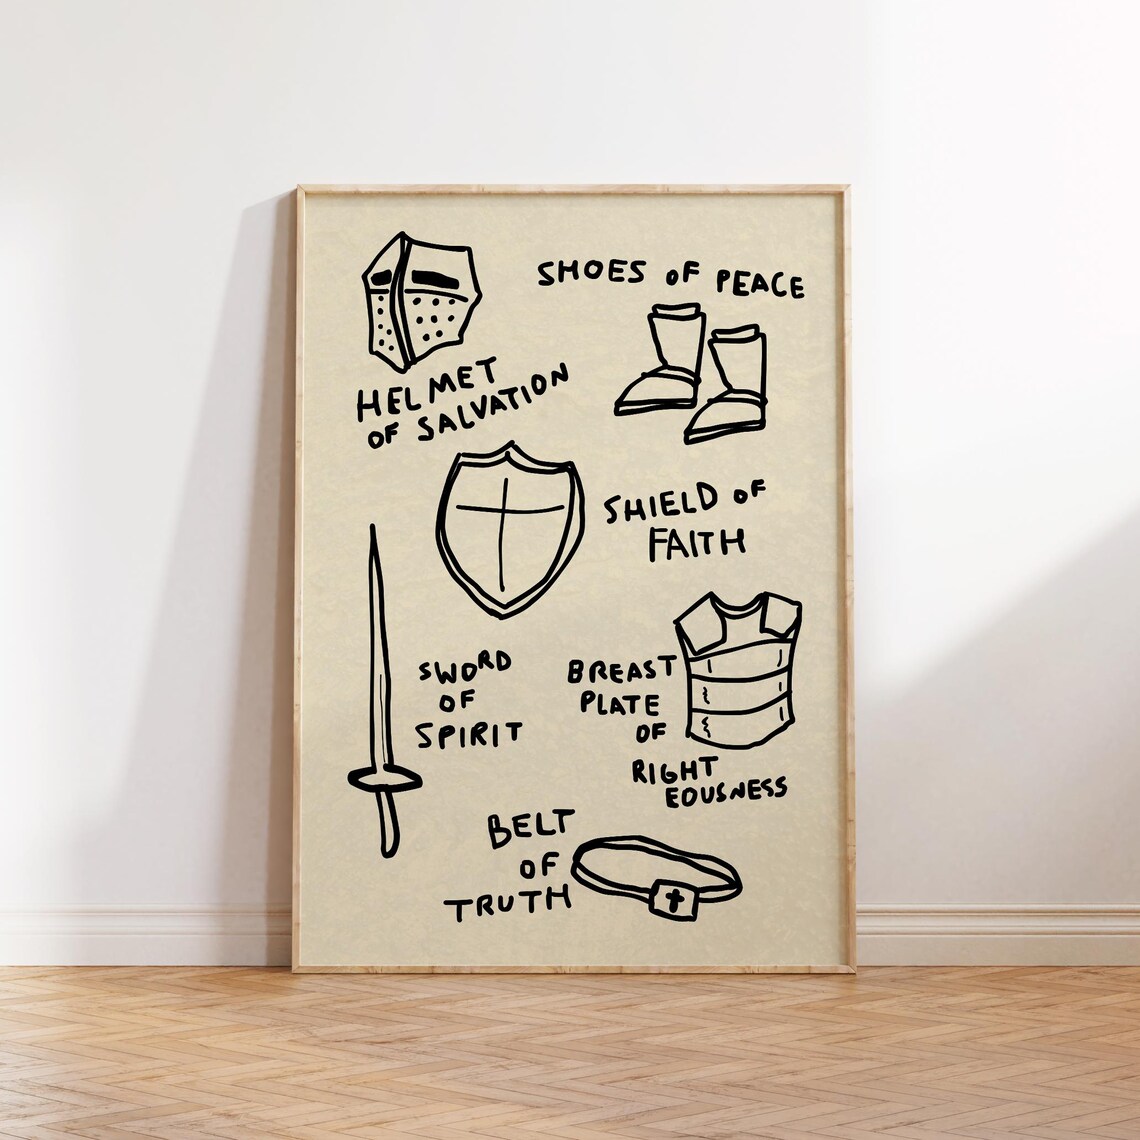 SHOES OF PEACE
HELMET
OF SALVATION
SHIELD OF
FAITH
SWORD
OF
SPIRIT
BREAST
PLATE
OF
RIGHT
EOUSNESS
BELT
OF
TRUTH